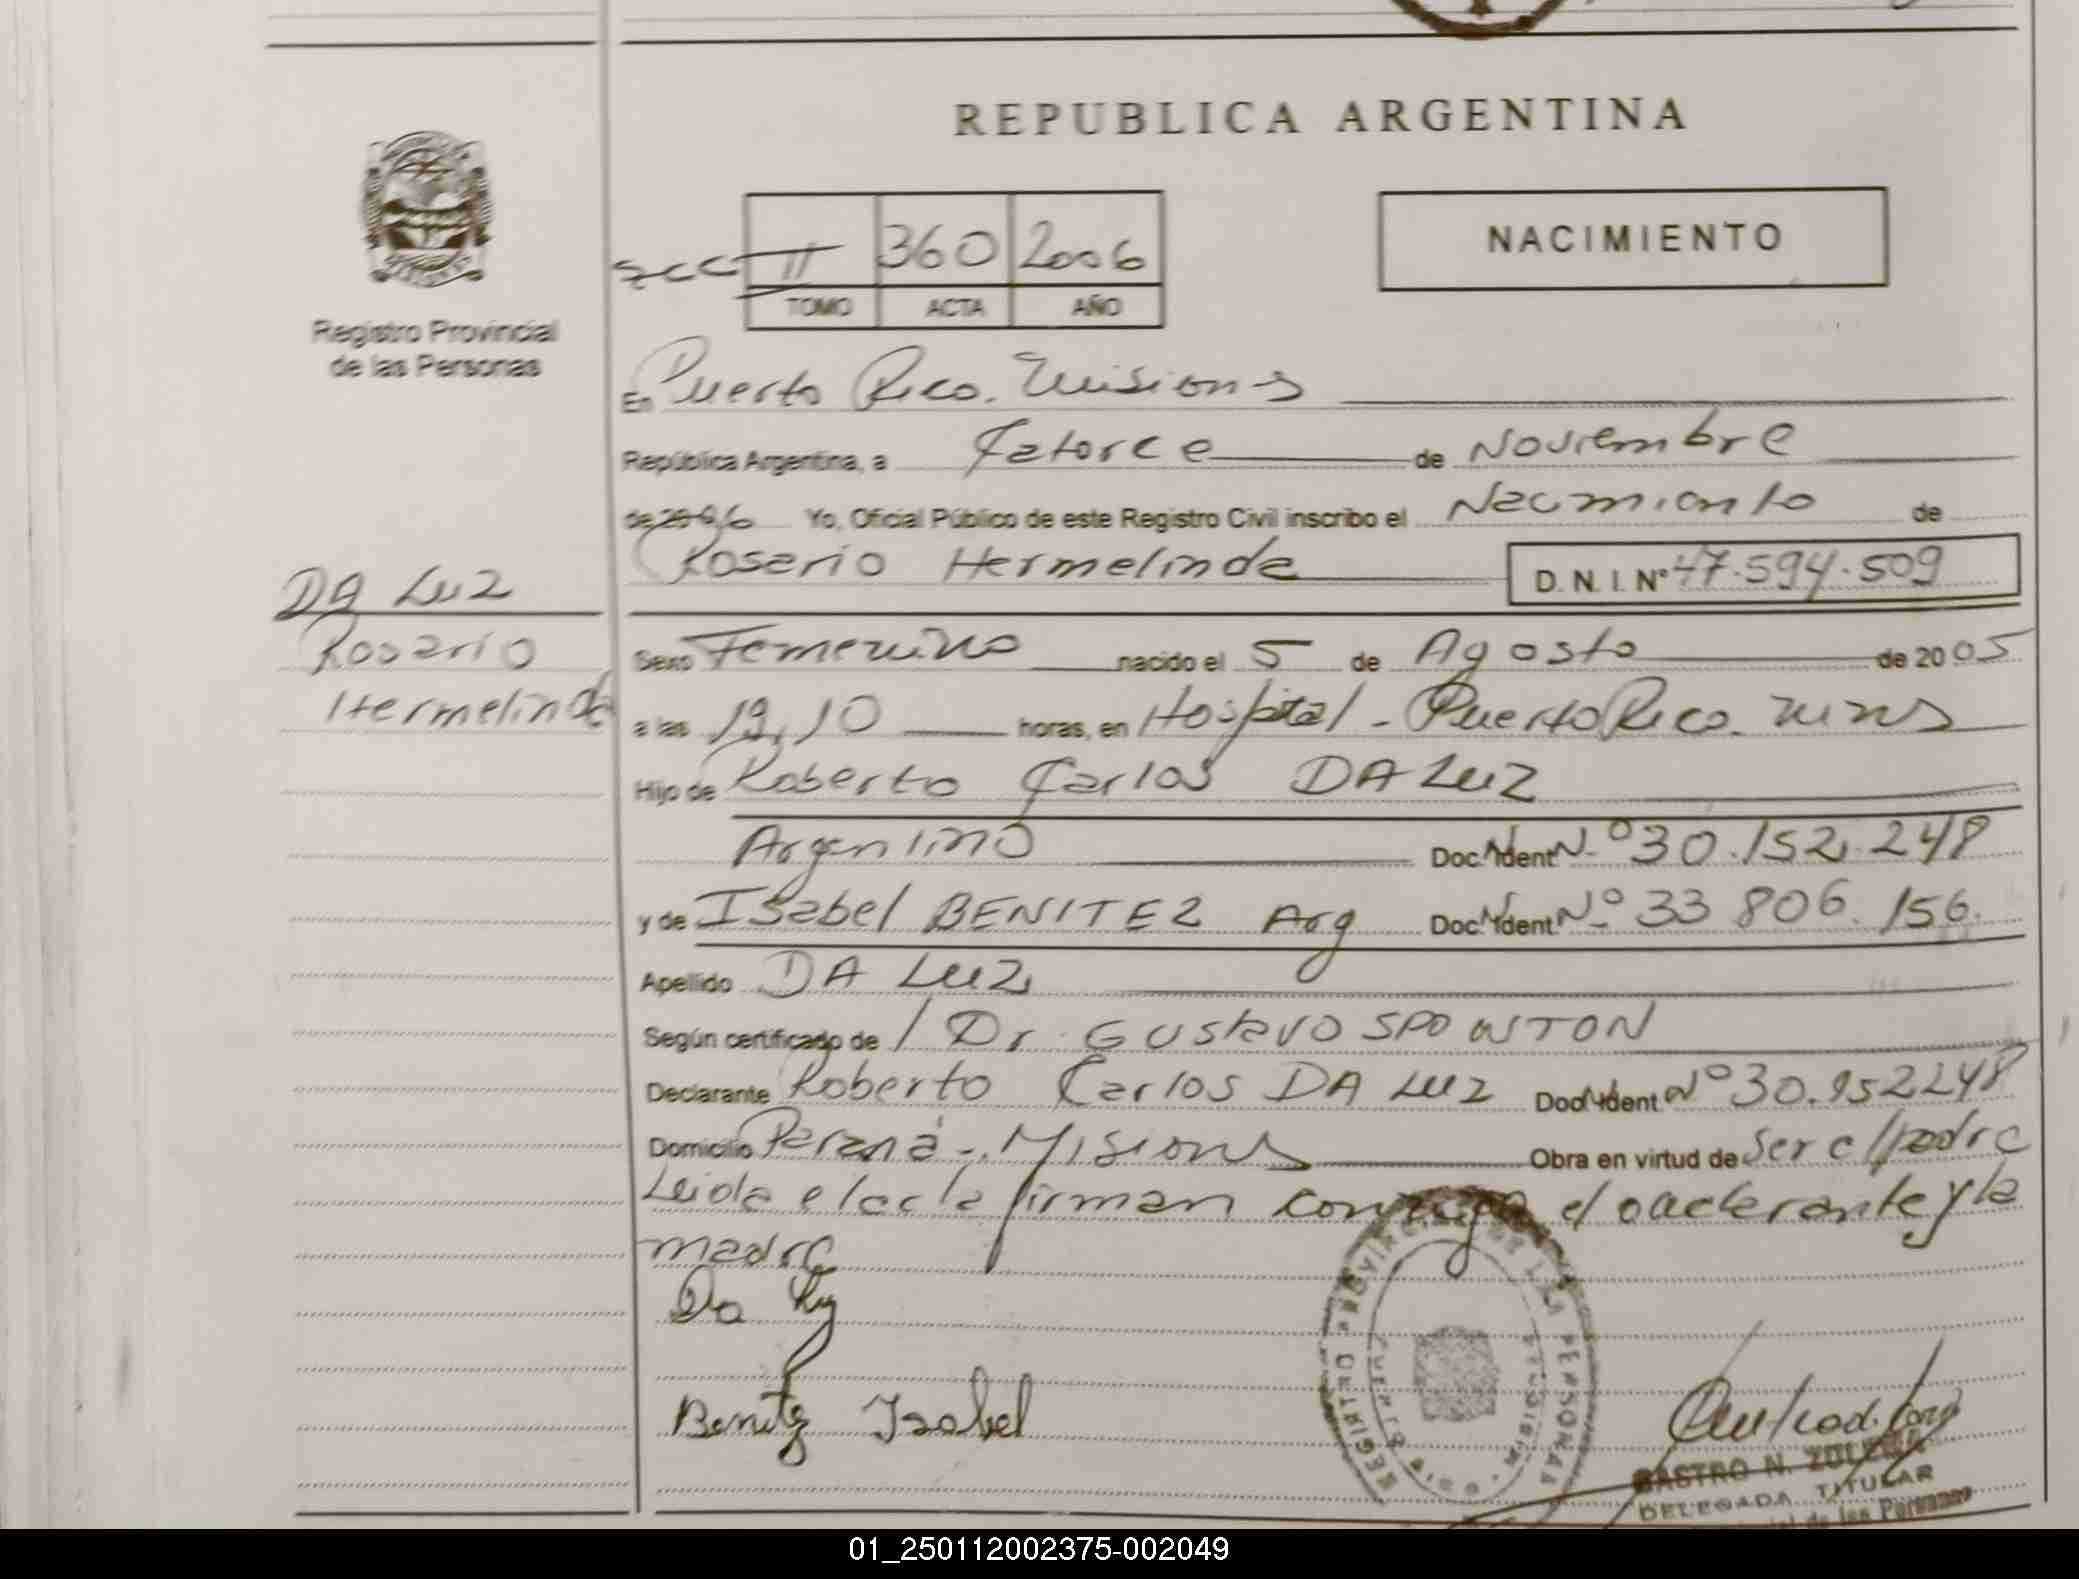 REPUBLICA ARGENTINA
Registro Provincial
de las Personas
secc II 360 2006
TOMO ACTA AÑO
NACIMIENTO
En Puerto Rico. Misiones
República Argentina, a Catorce de Noviembre
de 2006 Yo, Oficial Público de este Registro Civil inscribo el Nacimiento de
Rosario Hermelinda D. N. I. Nº 47.594.509
DA LUZ
Rosario
Hermelinda
Sexo Femenino nacido el 5 de Agosto de 2005
a las 19,10 horas, en Hospital - Puerto Rico. Mnes
Hijo de Roberto Carlos DA LUZ
Argentino Doc. Ident Nº 30.152.248
y de Isabel BENITEZ Arg Doc. Ident Nº 33 806.156.
Apellido DA LUZ
Según certificado de / Dr. Gustavo SPONTON
Declarante Roberto Carlos DA LUZ Doc. Ident Nº 30.152248
Domicilio Paraná - Misiones Obra en virtud de ser el padre
Leida el acta firman conmigo el declarante y la
madre
Da Luz
Benitez Isabel
REGISTRO PROVINCIAL DE LAS PERSONAS
CASTRO N.
DELEGADA TITULAR
de las Personas
01_250112002375-002049